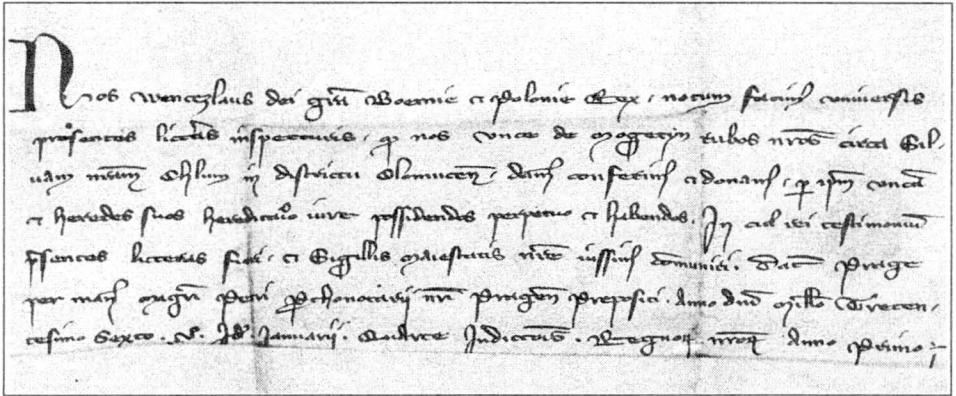 Nos Wenczlaus dei gra Boemie et Polonie Rex. notum facim universis
presentes litteras inspecturis. q nos Uncce de Mogetin rubos nros circa Sil-
vam nram Chlum in districtu Olomucen. dam conferim et donam. p ipm
et heredes suos hereditario iure possidendos perpetuo et habendos. In cui rei testimoniu
psentes litteras fieri. et Sigillis Maiestatis nre iussim comuniri. Dat Prage
per man Magri Petri Pthonotarii nri Pragen Prepositi. Anno dni Millo Trecen-
tesimo Sexto. V. Id Januarii. Quarte Indictois. Regnoq nroq Anno Primo